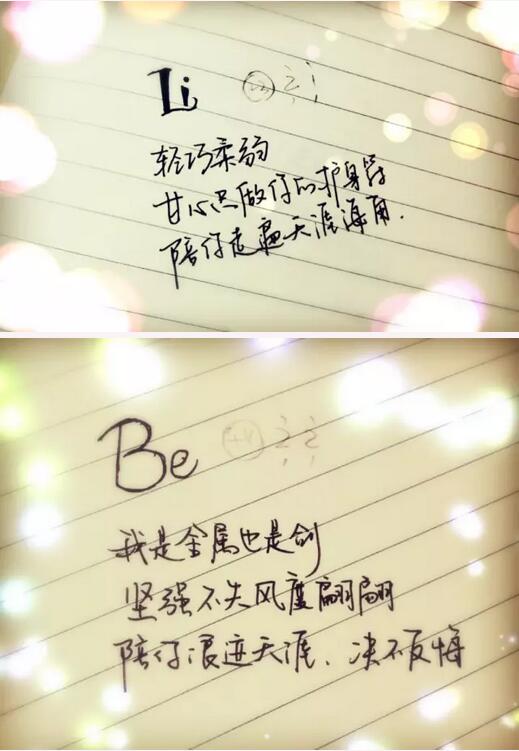 Li
轻巧柔弱
甘心只做你的护身符
陪你走遍天涯海角.
Be
+4 2 2
我是金属也是剑
坚强不失风度翩翩
陪你浪迹天涯、决不反悔